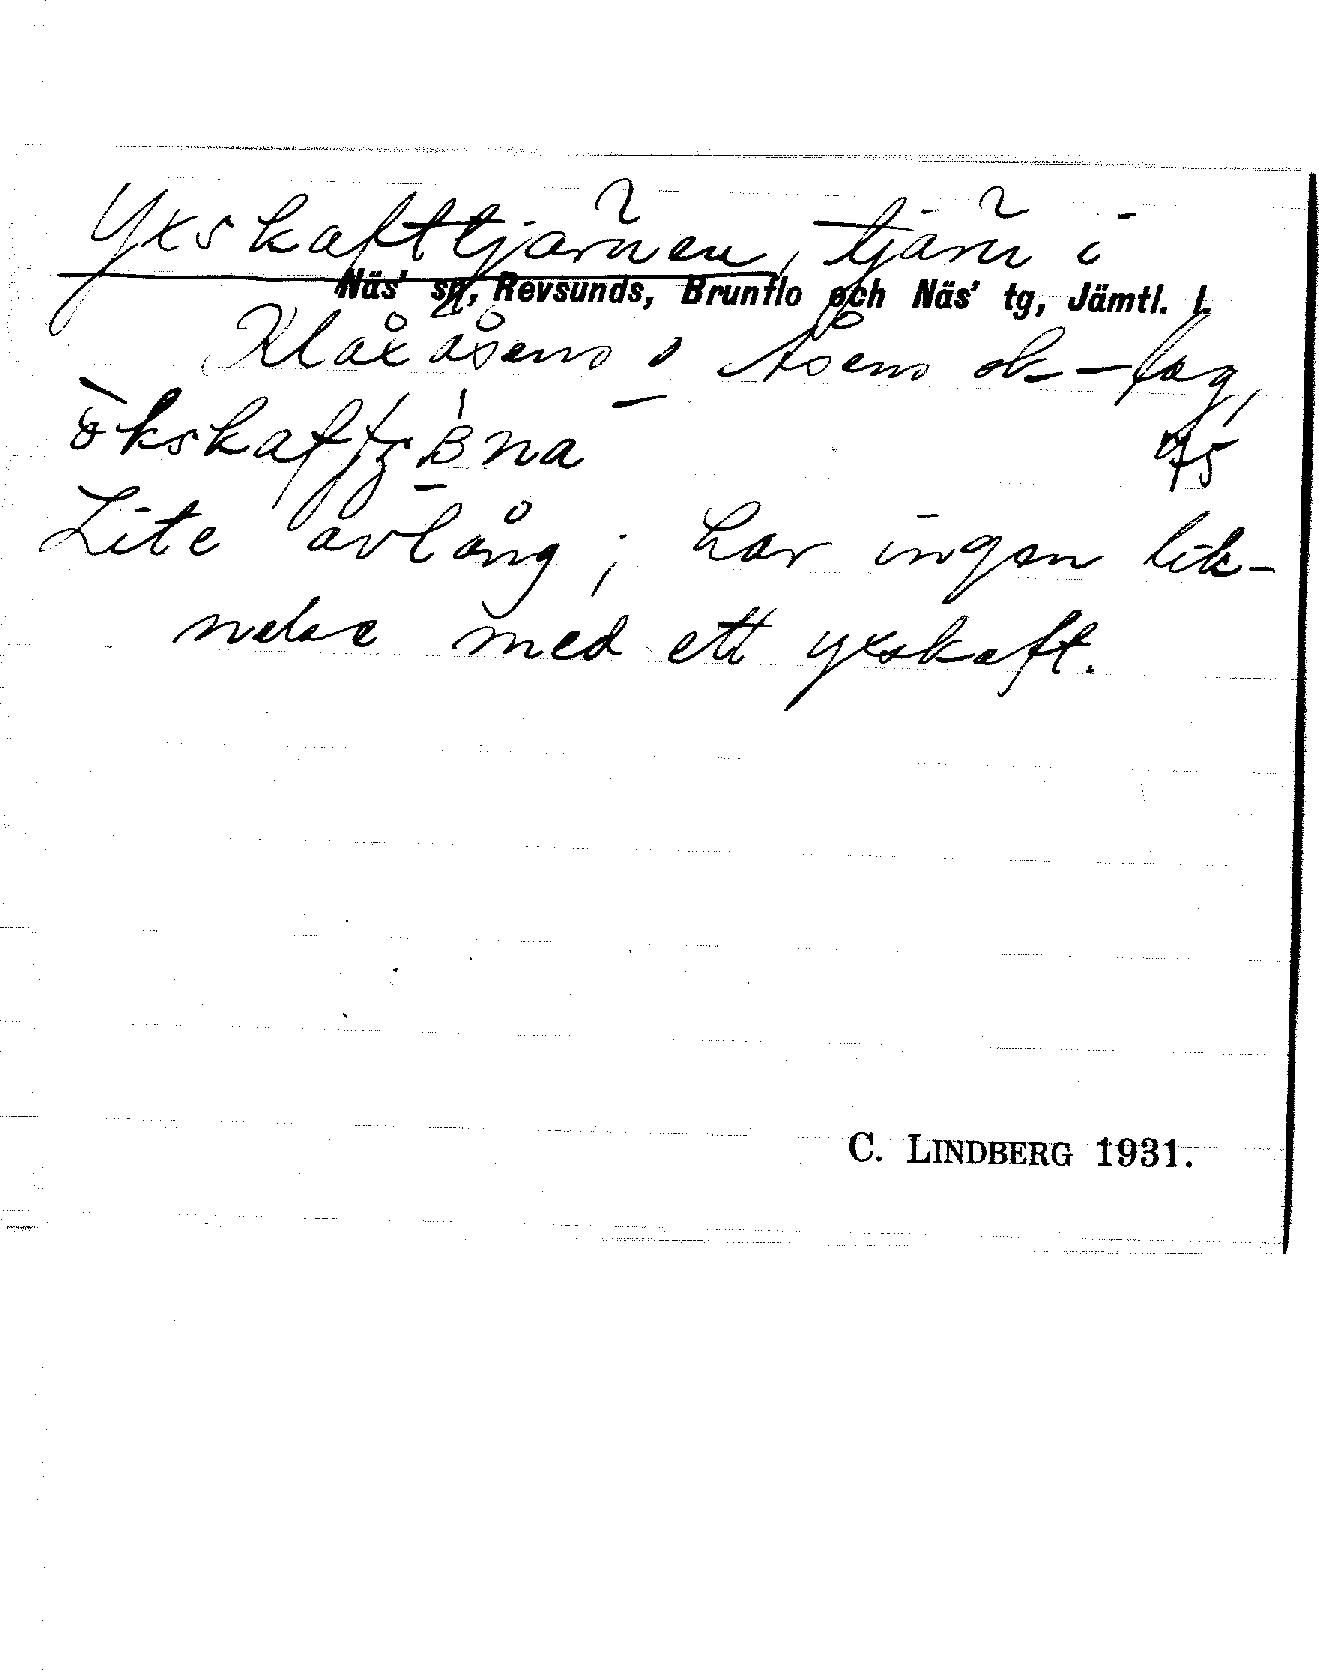 Yxskafttjärnen, tjärn i
Näs' sn, Revsunds, Brunflo och Näs' tg, Jämtl. l.
Klåxåsens o Åsens sk-lag,
75
Lite avlång; har ingen lik-
nelse med ett yxskaft.
C. LINDBERG 1931.